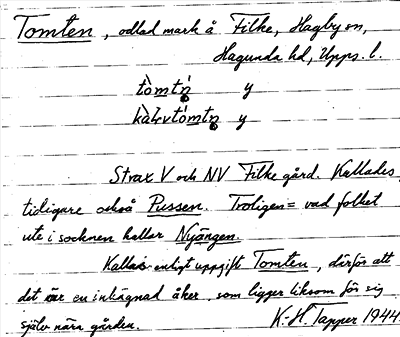 Tomten, odlad mark å Filke, Hagby sn,
Hagunda hd, Upps. l.
tòmtn̥ y
kàlvtòmtn̥ y
Strax V och NV Filke gård. Kallades
tidigare också Pussen. Troligen = vad folket
ute i socknen kallar Nyängen.
Kallas enligt uppgift Tomten, därför att
det är en inhägnad åker, som ligger liksom för sig
själv nära gården.
K.-H. Tapper 1944